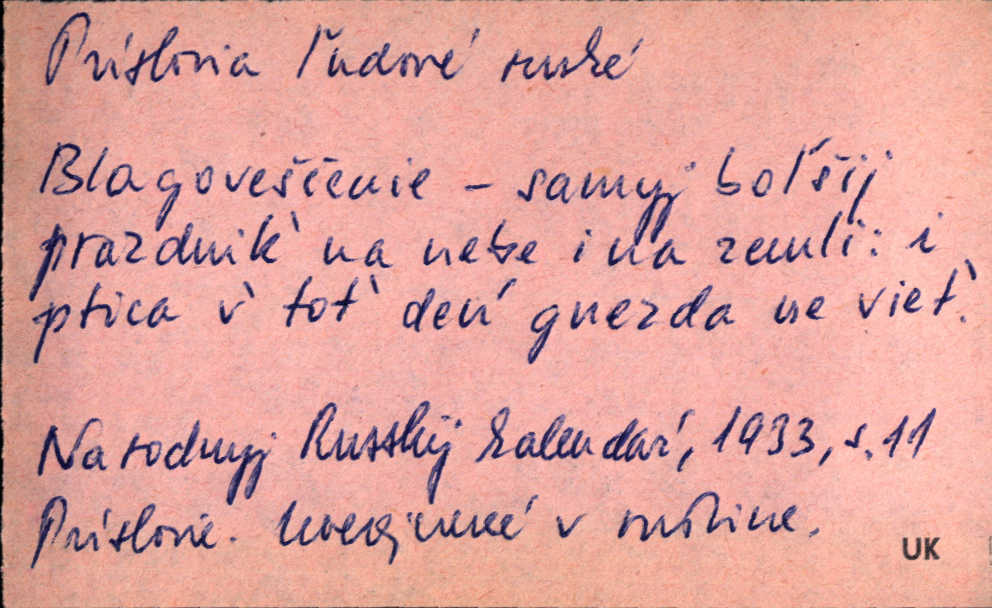 Príslovia ľudové ruské
Blagoveščenie – samyj boľšij
prazdnik̀ na nebe i na zemli: i
ptica v̀ tot̀ deń gnezda ne viet̀.
Narodnyj Russkij kalendaŕ, 1933, s. 11
Príslovie. Uverejnené v ruštine.
UK